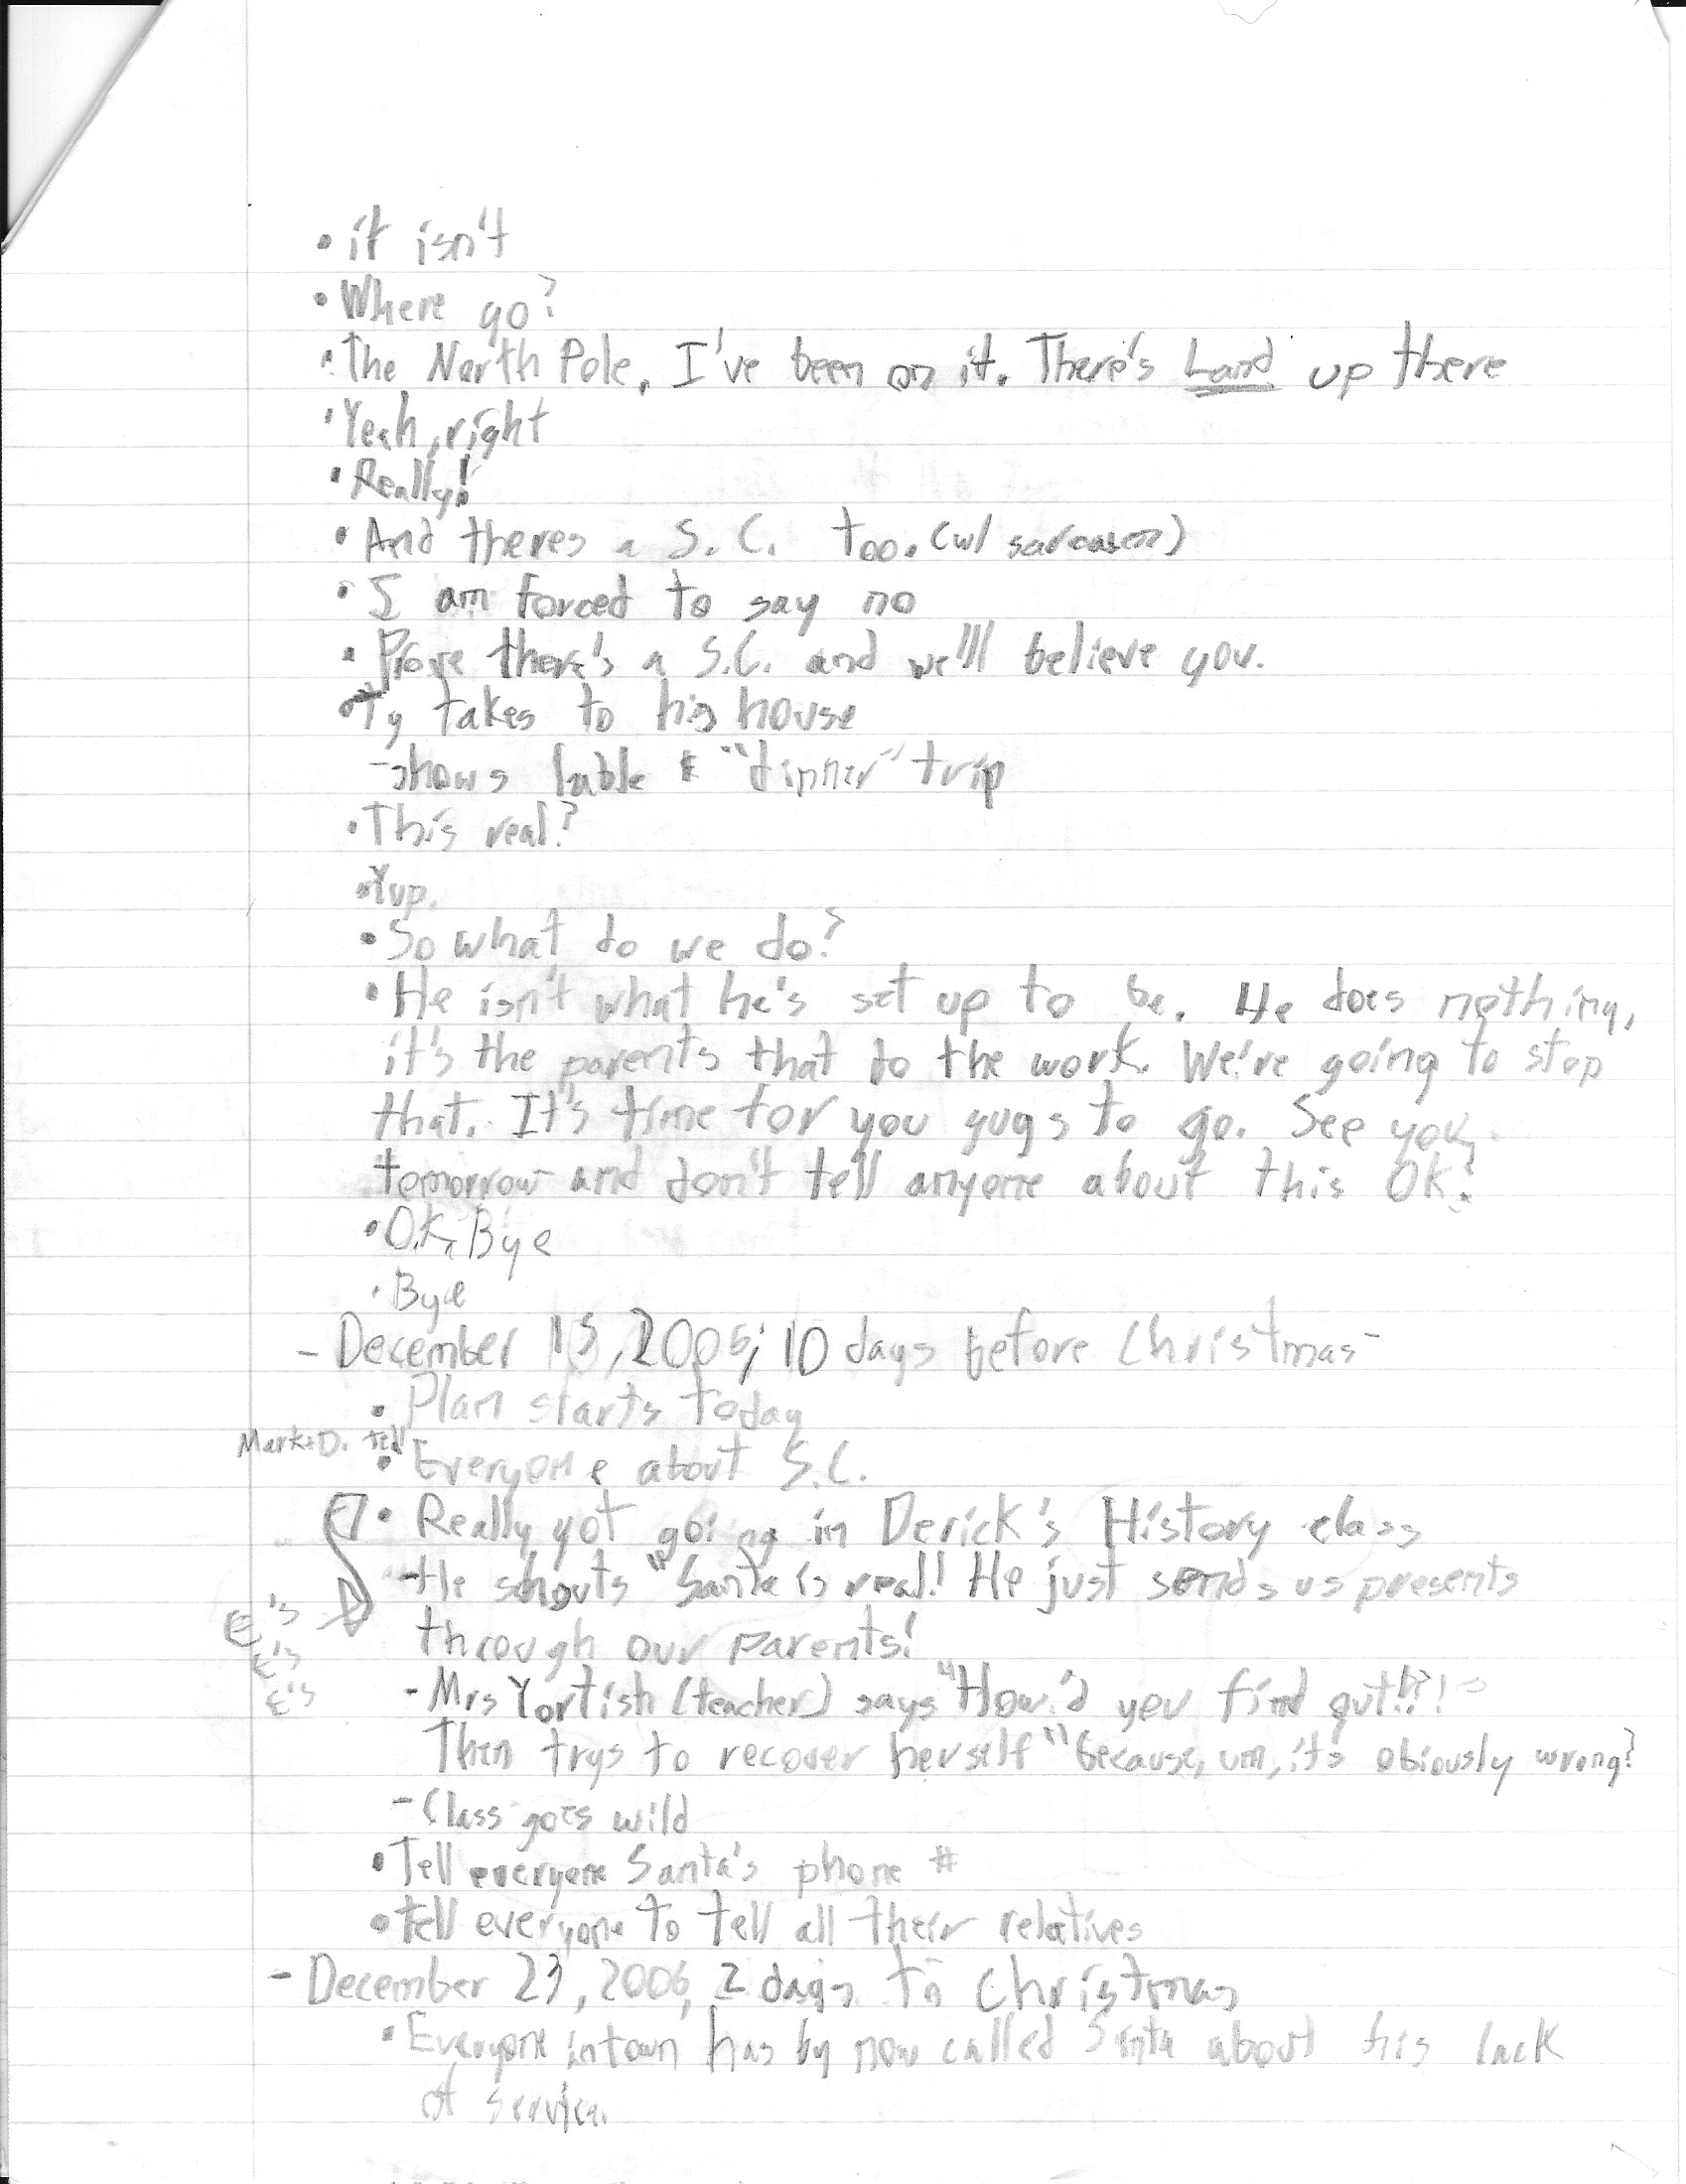 • it isn't
• Where go?
• The North Pole, I've been on it. There's Land up there
• Yeah, right
• Really!
• And theres a S. C. too. (w/ sarcasm)
• I am forced to say no
• Prove there's a S.C. and we'll believe you.
• Ty takes to his house
- shows lable & "dinner" trip
• This real?
• Yup.
• So what do we do?
• He isn't what he's set up to be. He does nothing,
it's the parents that do the work. We're going to stop
that. It's time for you guys to go. See you
tomorrow and don't tell anyone about this OK?
• O.K. Bye
• Bye
- December 15, 2006; 10 days before Christmas -
• Plan starts today
Mark & D. tell
• Everyone about S.C.
• Really got going in Derick's History class
- He shouts "Santa is real! He just sends us presents
through our parents!
E's
E's
E's
- Mrs Yortish (teacher) says "How'd you find out!?!
Then trys to recover herself "because, um, it's obiously wrong?
- Class goes wild
• Tell everyone Santa's phone #
• tell everyone to tell all their relatives
- December 23, 2006, 2 days to Christmas
• Everyone in town has by now called Santa about his lack
of service.